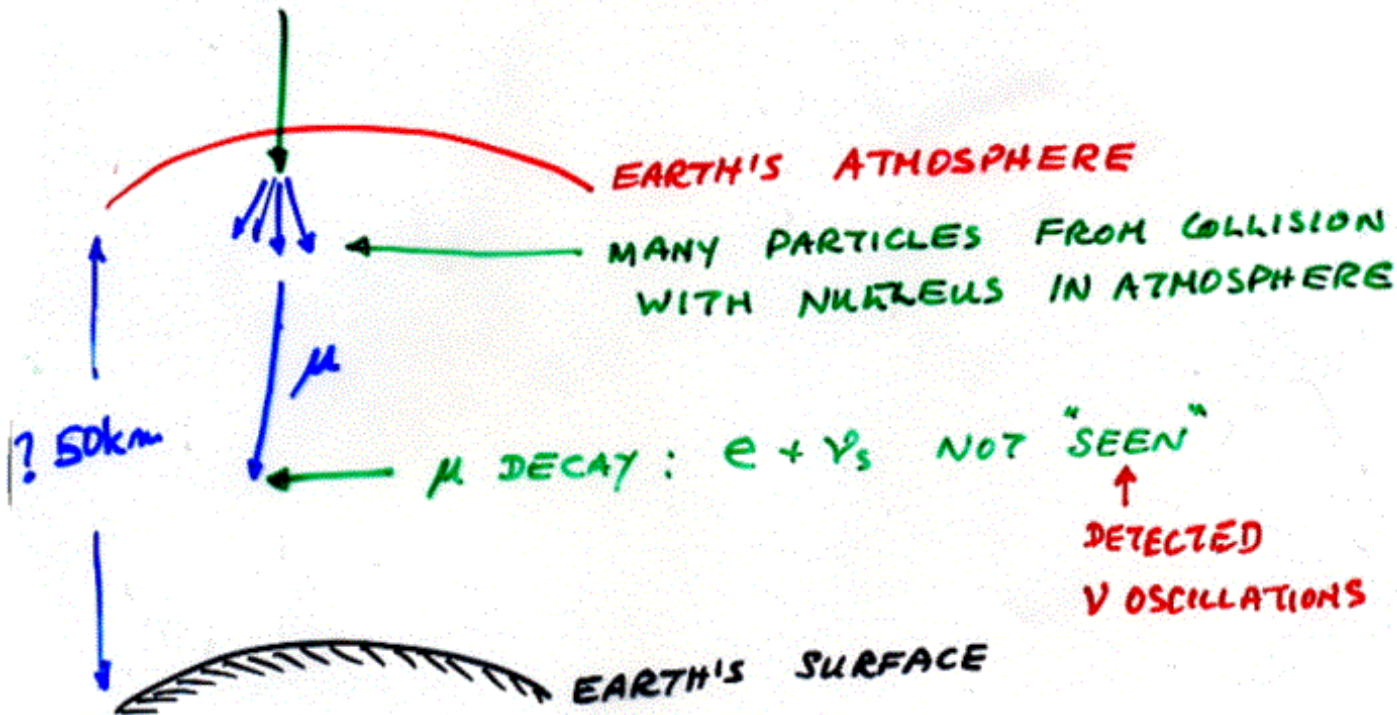 EARTH'S ATMOSPHERE
MANY PARTICLES FROM COLLISION
WITH NUCLEUS IN ATMOSPHERE
μ
? 50km
μ DECAY : e + νs NOT "SEEN"
DETECTED
ν OSCILLATIONS
EARTH'S SURFACE